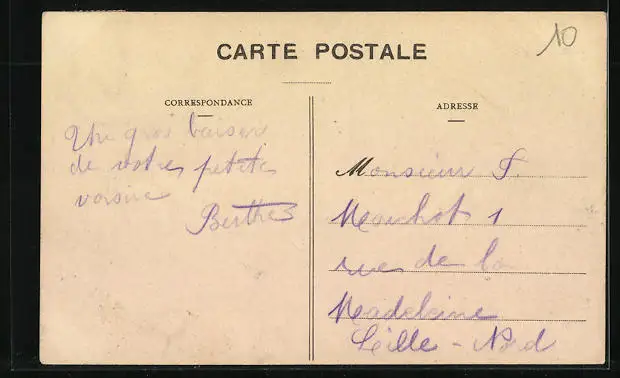 10
CARTE POSTALE
CORRESPONDANCE
ADRESSE
Un gros baiser
de votre petite
voisine
Berthe
Monsieur F.
1
rue de la
Madeleine
Lille - Nord